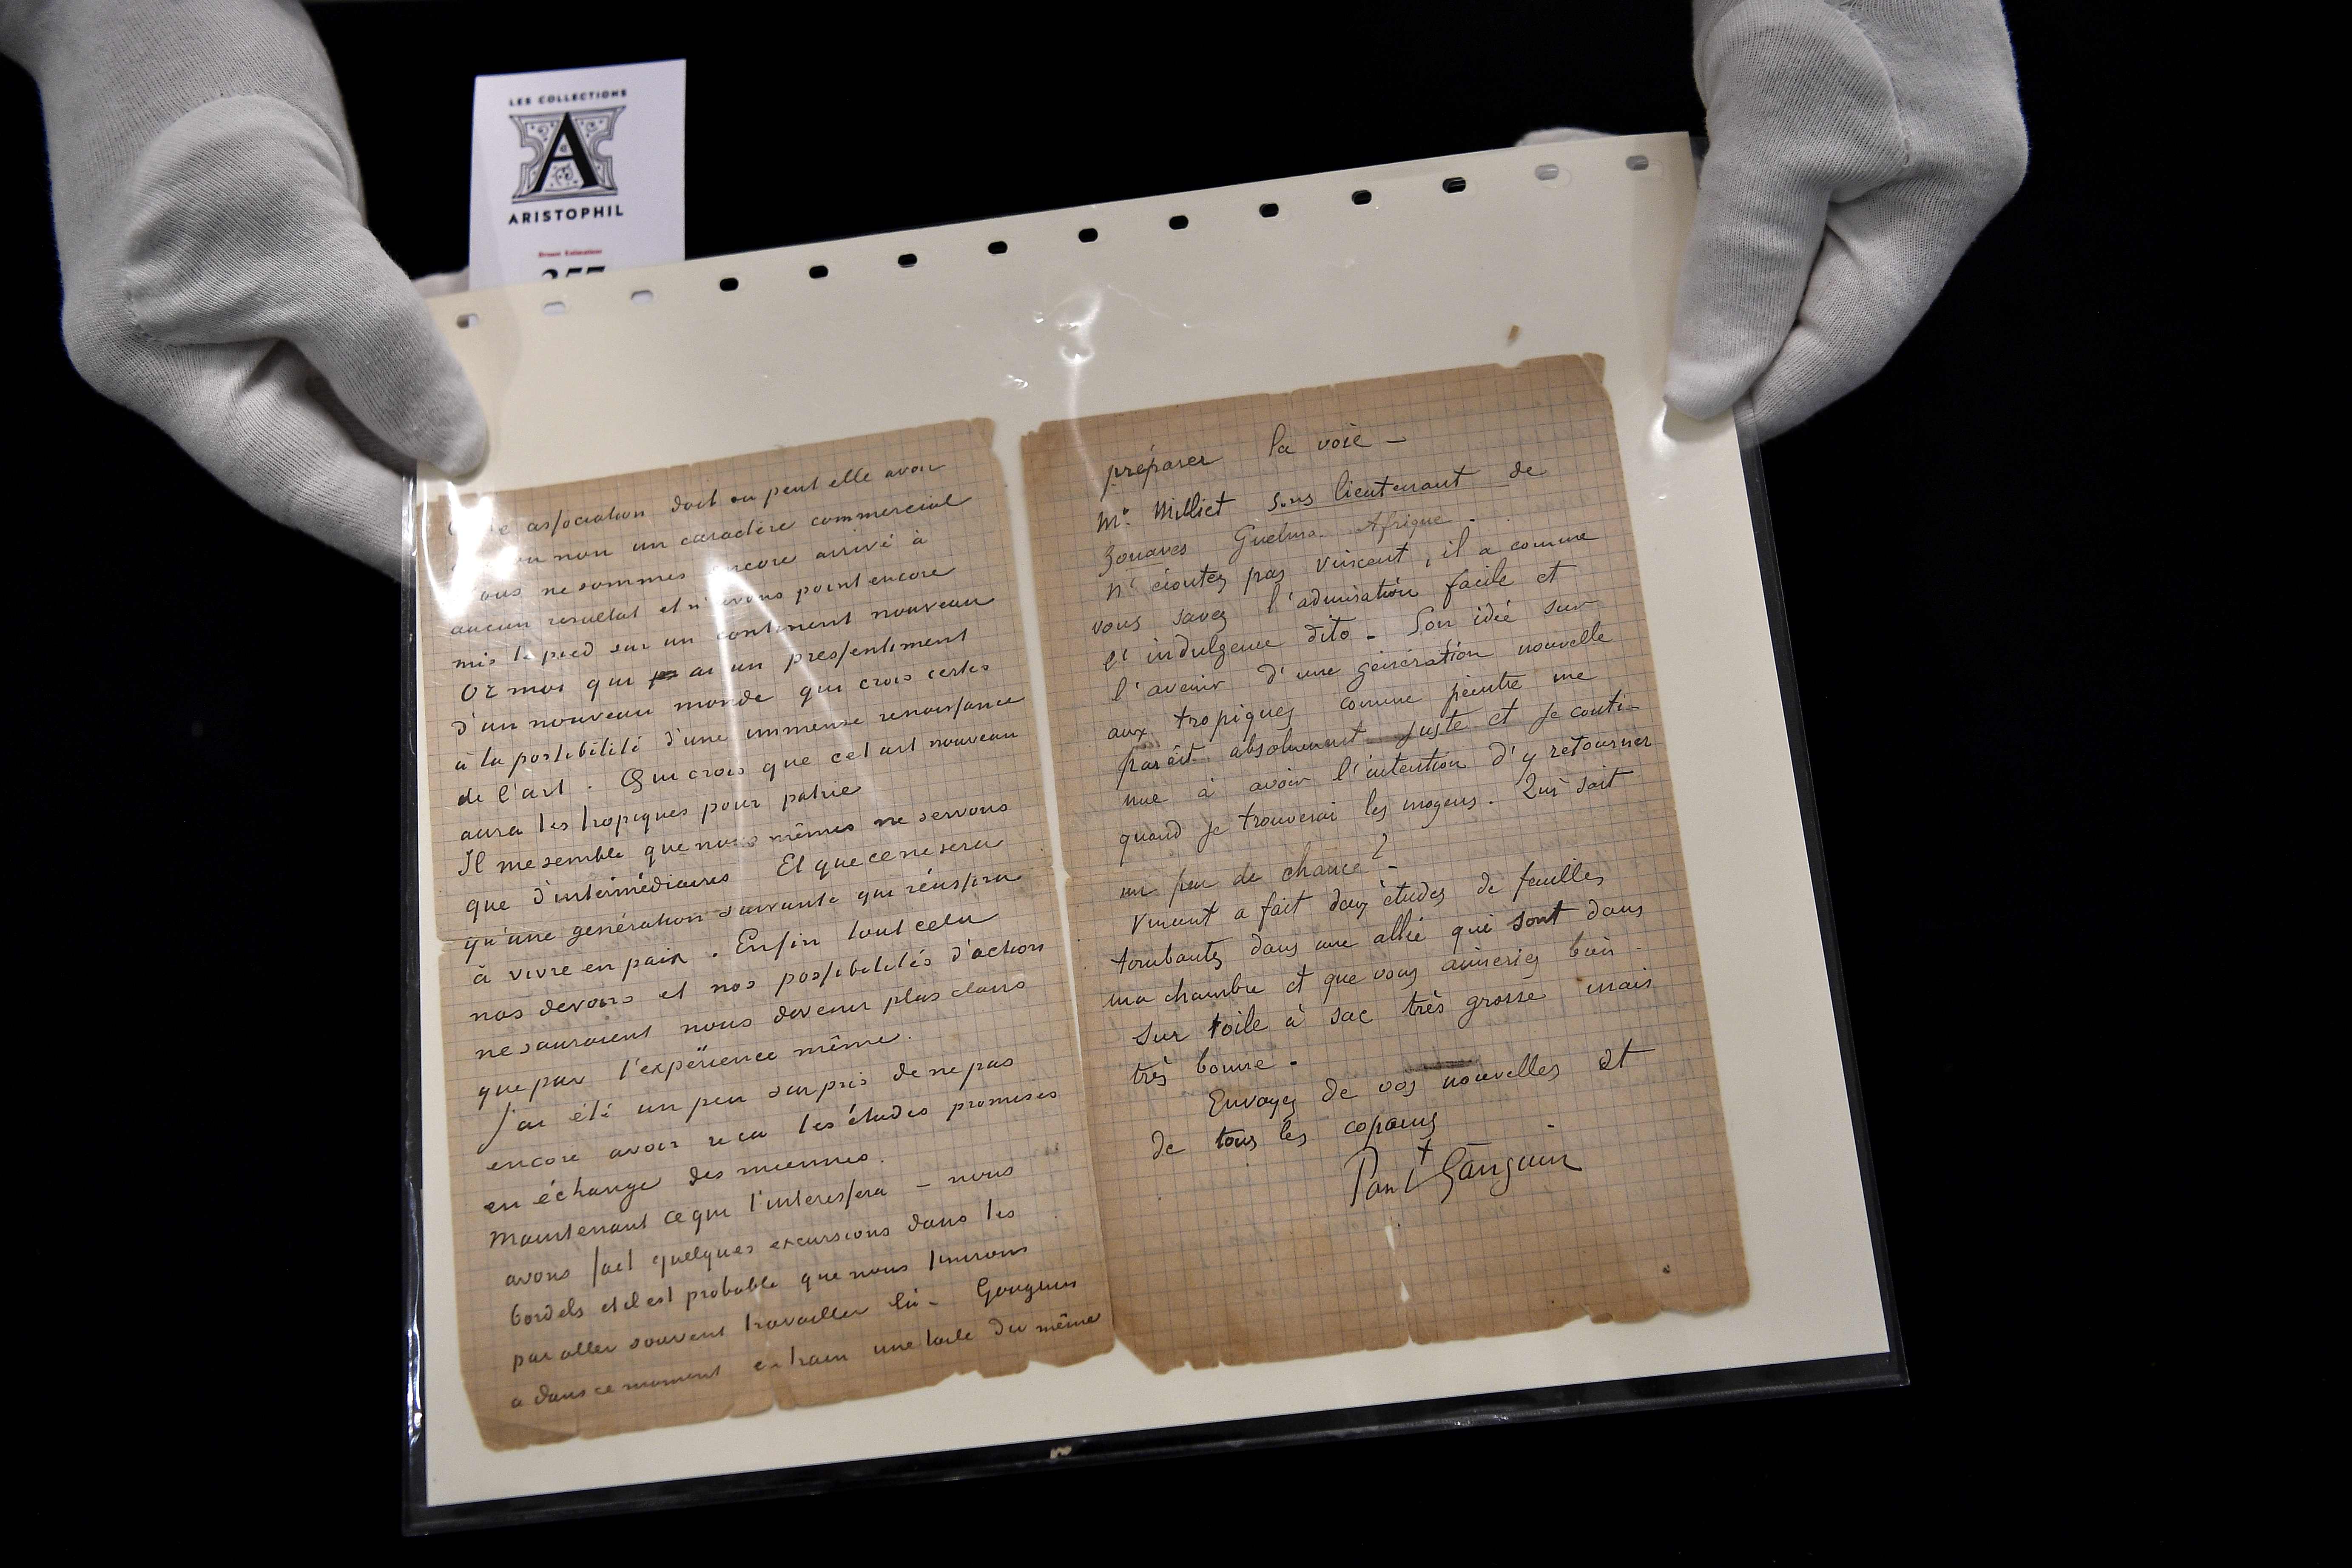 LES COLLECTIONS
A
ARISTOPHIL
Drouot Estimations
357
association doit ou peut elle avoir
ou non un caractère commercial
nous ne sommes encore arrivé à
aucun resultat et n'avons point encore
mis le pied sur un continent nouveau
Or moi qui ai un pressentiment
d'un nouveau monde qui crois certes
à la possibilité d'une immense renaissance
de l'art. Qui crois que cet art nouveau
aura les tropiques pour patrie
Il me semble que nous mêmes ne servons
que d'intermédiaires Et que ce ne sera
qu'une genération suivante qui réussira
à vivre en paix. Enfin tout cela
nos devoirs et nos possibilités d'action
ne sauraient nous devenir plus clairs
que par l'expérience même.
J'ai été un peu surpris de ne pas
encore avoir reçu les études promises
en échange des miennes.
Maintenant ce qui t'interessera – nous
avons fait quelques excursions dans les
bordels et il est probable que nous finirons
par aller souvent travailler là – Gauguin
a dans ce moment en train une toile du même
préparer la voie –
Mr. Milliet sous lieutenant de
Zouaves Guelma Afrique.
N'écoutez pas Vincent, il a comme
vous savez l'admiration facile et
l'indulgence dito – Son idée sur
l'avenir d'une génération nouvelle
aux tropiques comme peintre me
parait absolument juste et je conti-
nue à avoir l'intention d'y retourner
quand je trouverai les moyens. Qui sait
un peu de chance? –
Vincent a fait deux études de feuilles
tombantes dans une allée qui sont dans
ma chambre et que vous aimeriez bien
sur toile à sac très grosse mais
très bonne –
Envoyez de vos nouvelles et
de tous les copains
Paul Gauguin